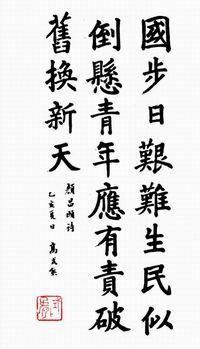 國步日艱難生民似
倒懸青年應有責破
舊換新天
顏昌頤詩
乙亥夏日